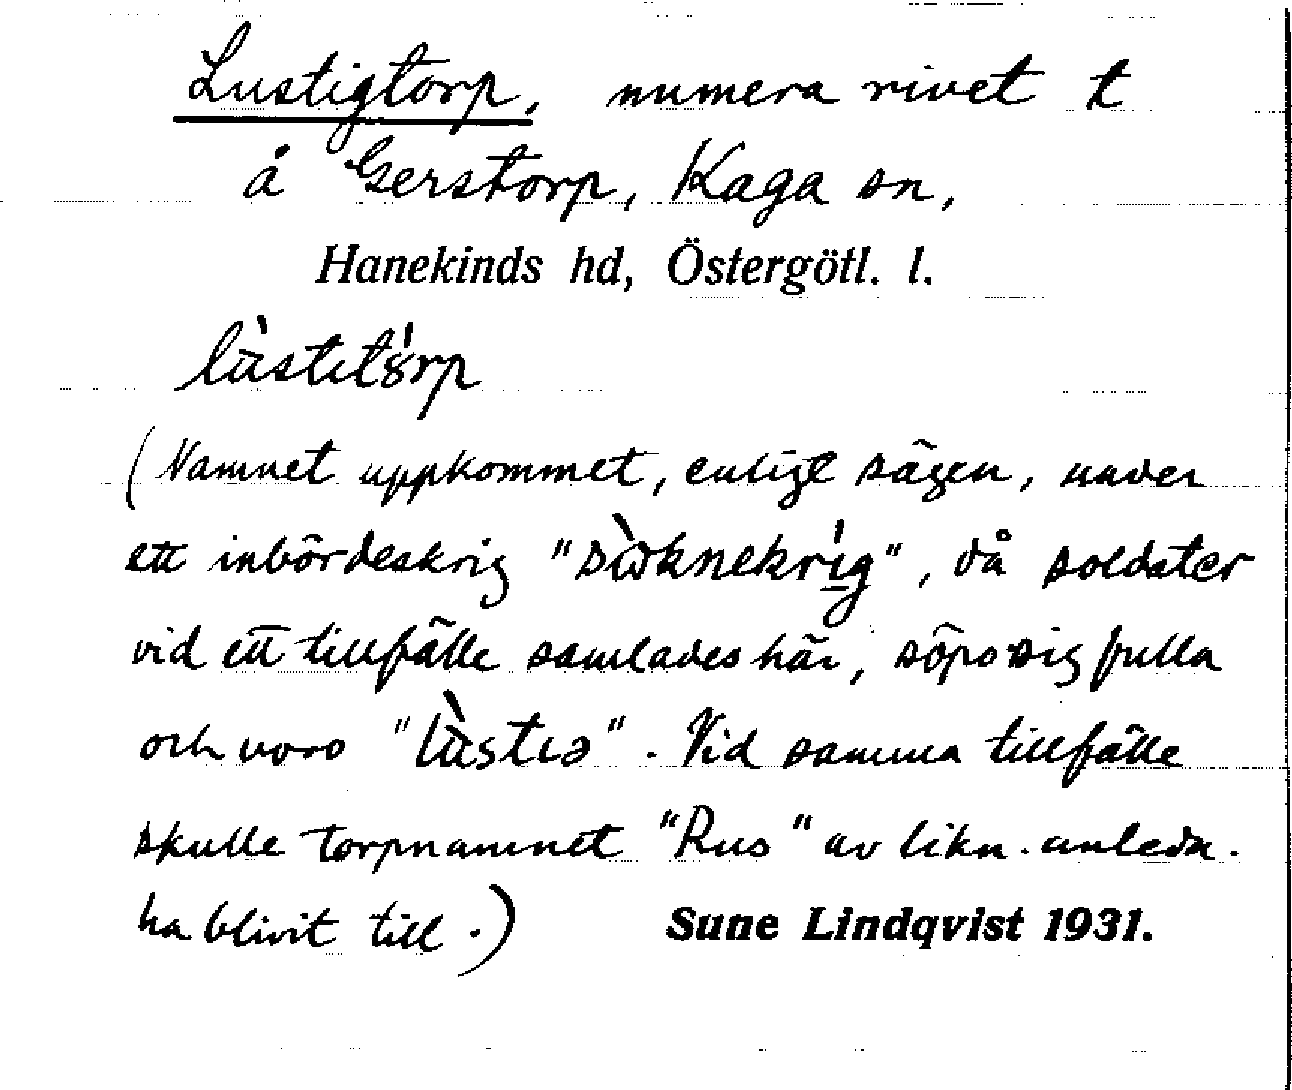 Lustigtorp, numera rivet t
å Gerstorp, Kaga sn,
Hanekinds hd, Östergötl. l.
(Namnet uppkommet, enligt sägen, under
ett inbördeskrig "                ", då soldater
vid ett tillfälle samlades här, söpo sig fulla
och voro "           ". Vid samma tillfälle
skulle torpnamnet "Rus" av likn. anledn.
ha blivit till.)
Sune Lindqvist 1931.